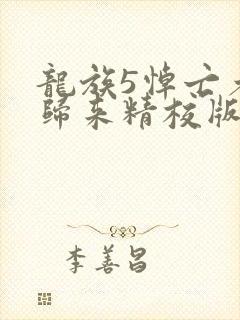 龍族5悼亡者
歸来精校版
李善昌